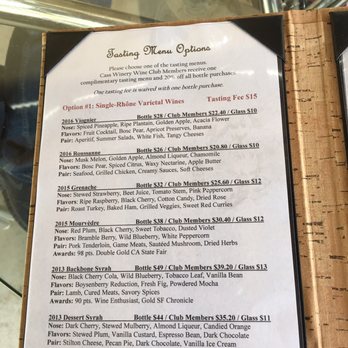 Tasting Menu Options
Please choose one of the tasting menus.
Cass Winery Wine Club Members receive one
complimentary tasting menu and 20% off all bottle purchases.
One tasting fee is waived with one bottle purchase.
Option #1: Single-Rhône Varietal Wines Tasting Fee $15
2016 Viognier Bottle $28 / Club Members $22.40 / Glass $10
Nose: Spiced Pineapple, Ripe Plantain, Golden Apple, Acacia Flower
Flavors: Fruit Cocktail, Bosc Pear, Apricot Preserves, Banana
Pair: Aperitif, Summer Salads, White Fish, Tangy Cheeses
2016 Roussanne Bottle $26 / Club Members $20.80 / Glass $10
Nose: Musk Melon, Golden Apple, Almond Liqueur, Chamomile
Flavors: Bosc Pear, Spiced Citrus, Waxy Nectarine, Apple Butter
Pair: Seafood, Grilled Chicken, Creamy Sauces, Soft Cheeses
2015 Grenache Bottle $32 / Club Members $25.60 / Glass $12
Nose: Stewed Strawberry, Beet Juice, Tomato Stem, Pink Peppercorn
Flavors: Ripe Raspberry, Black Cherry, Cotton Candy, Dried Rose
Pair: Roast Turkey, Baked Ham, Grilled Veggies, Sweet Red Curries
2015 Mourvèdre Bottle $38 / Club Members $30.40 / Glass $12
Nose: Red Plum, Black Cherry, Sweet Tobacco, Dusted Violet
Flavors: Bramble Berry, Wild Blueberry, White Peppercorn
Pair: Pork Tenderloin, Game Meats, Sautéed Mushroom, Dried Herbs
Awards: 98 pts. Double Gold CA State Fair
2013 Backbone Syrah Bottle $49 / Club Members $39.20 / Glass $13
Nose: Black Cherry Cola, Wild Blueberry, Tobacco Leaf, Vanilla Bean
Flavors: Boysenberry Reduction, Fresh Fig, Powdered Mocha
Pair: Lamb, Cured Meats, Savory Spices
Awards: 90 pts. Wine Enthusiast, Gold SF Chronicle
2013 Dessert Syrah Bottle $44 / Club Members $35.20 / Glass $11
Nose: Dark Cherry, Stewed Mulberry, Almond Liqueur, Candied Orange
Flavors: Stewed Plum, Vanilla Custard, Espresso Bean, Dark Chocolate
Pair: Stilton Cheese, Pecan Pie, Dark Chocolate, Vanilla Ice Cream